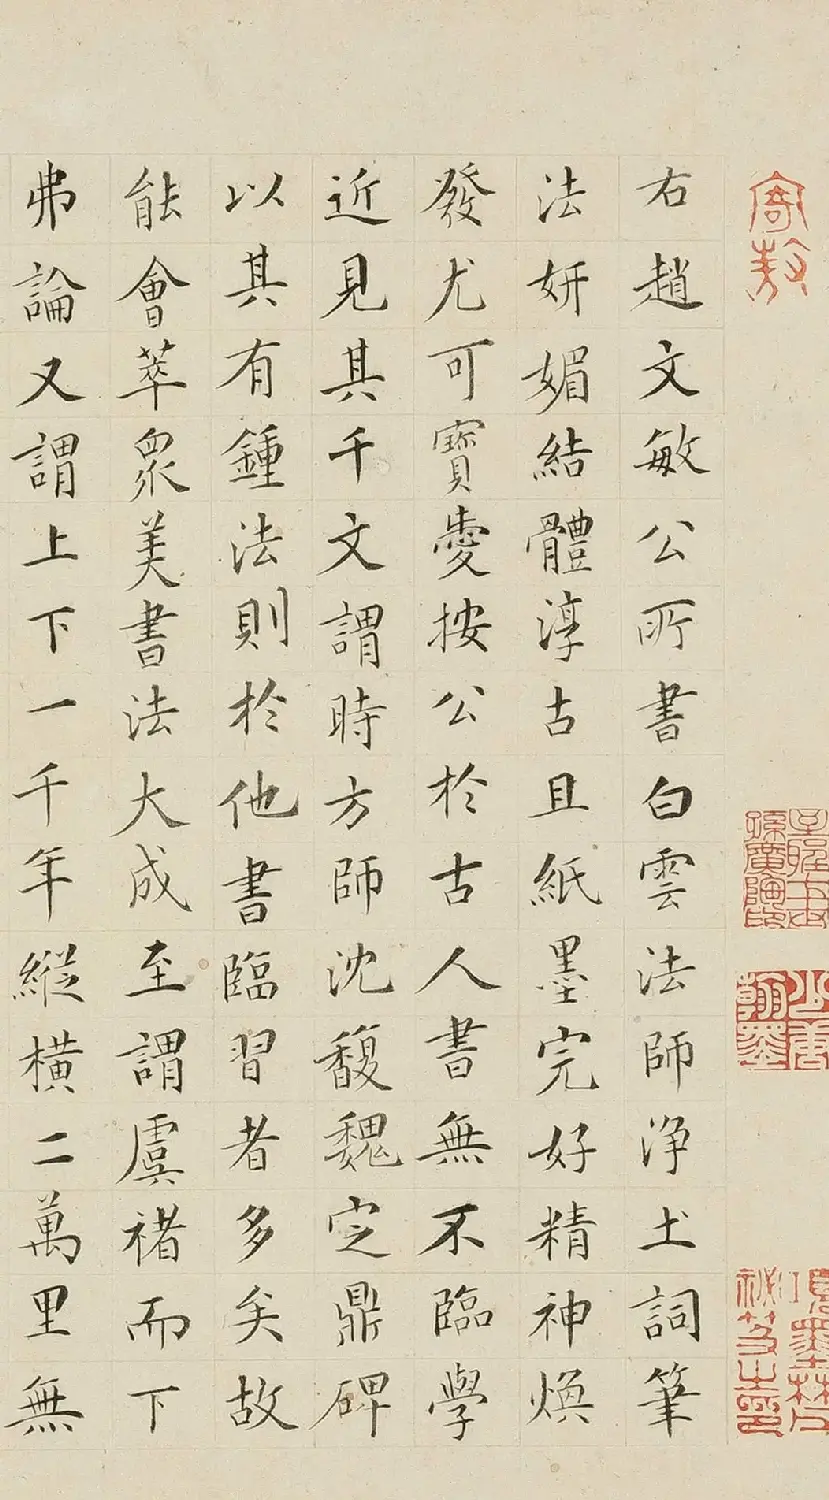 右趙文敏公所書白雲法師淨土詞筆
法妍媚結體淳古且紙墨完好精神煥
發尤可寶愛按公於古人書無不臨學
近見其千文謂時方師沈馥魏定鼎碑
以其有鍾法則於他書臨習者多矣故
能會萃衆美書法大成至謂虞褚而下
弗論又謂上下一千年縱橫二萬里無